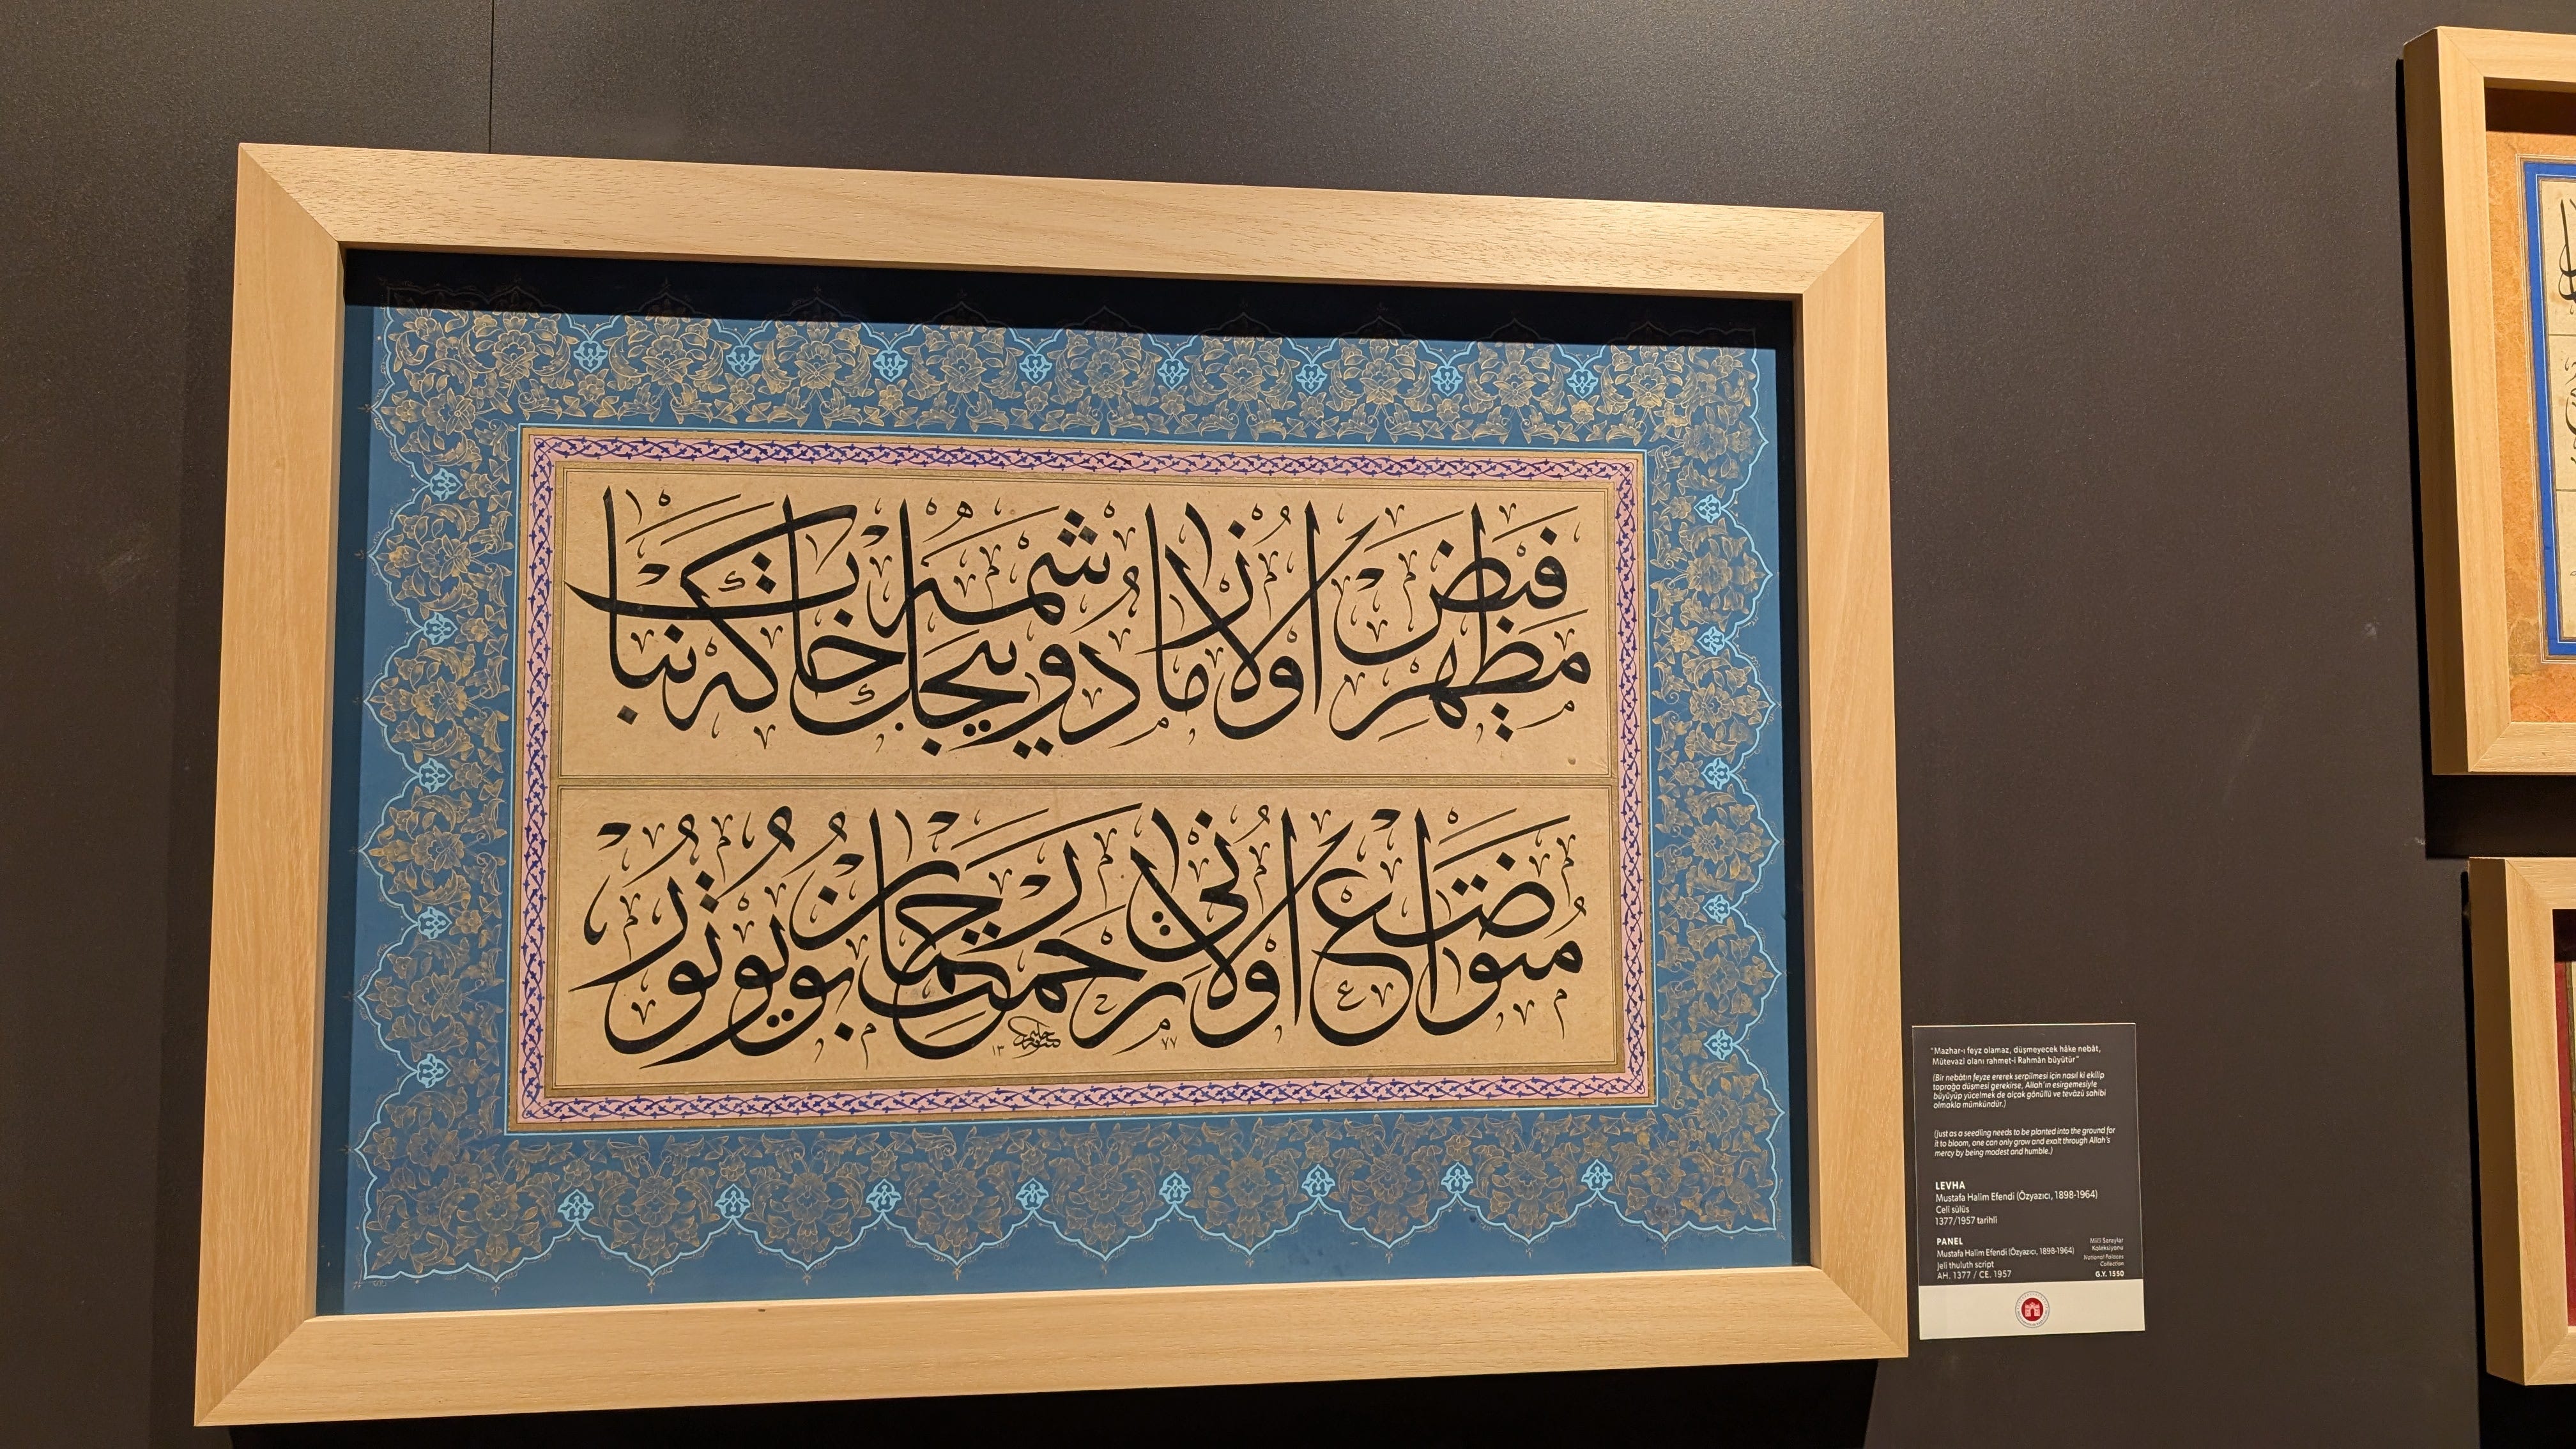 فیض مظهر اولاماز دوشمیه‌یجك خاكه نبات
متواضع اولانی رحمت رحمان بویوتور
١٣٧٧
"Mazhar-ı feyz olamaz, düşmeyecek hâke nebât,
Mütevazi olanı rahmet-i Rahmân büyütür"
(Bir nebâtın feyze ererek serpilmesi için nasıl ki ekilip
toprağa düşmesi gerekirse, Allah'ın esirgemesiyle
büyüyüp yücelmek de alçak gönüllü ve tevâzû sahibi
olmakla mümkündür.)
(Just as a seedling needs to be planted into the ground for
it to bloom, one can only grow and exalt through Allah's
mercy by being modest and humble.)
LEVHA
Mustafa Halim Efendi (Özyazıcı, 1898-1964)
Celi sülüs
1377/1957 tarihli
PANEL
Mustafa Halim Efendi (Özyazıcı, 1898-1964)
Jeli thuluth script
AH. 1377 / CE. 1957
Milli Saraylar
Koleksiyonu
National Palaces
Collection
G.Y. 1550